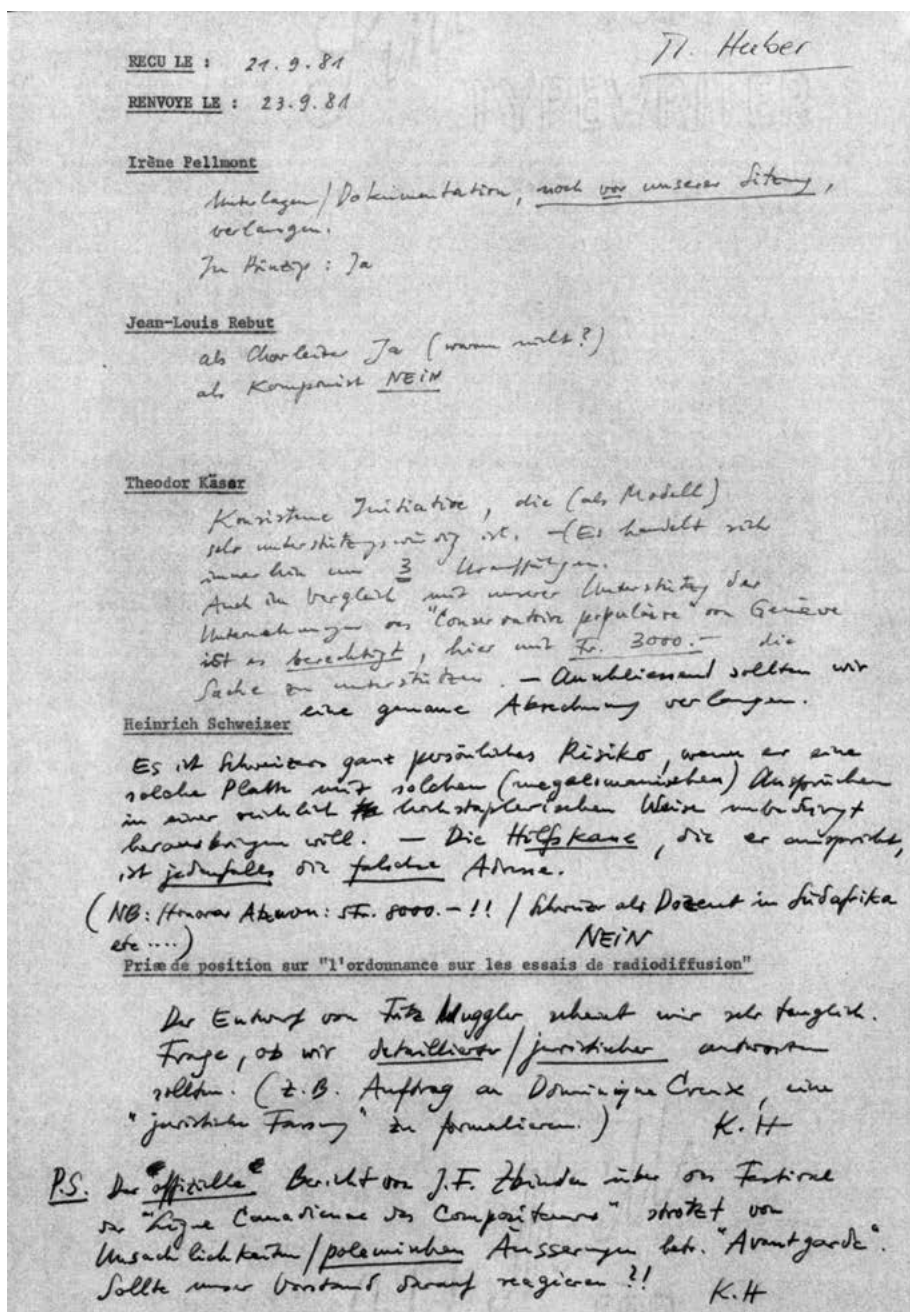 M. Huber
RECU LE : 21.9.81
RENVOYE LE : 23.9.81
Irène Pellmont
Unterlagen/Dokumentation, noch vor unserer Sitzung,
verlangen.
Im Prinzip : Ja
Jean-Louis Rebut
als Chorleiter Ja (warum nicht?)
als Komponist NEIN
Theodor Käser
Initiative, die (als Modell)
sehr unterstützungswürdig ist. – (Es handelt sich
immerhin um 3 Uraufführungen.
Auch im Vergleich mit unserer Unterstützung der
Unternehmungen des "Conservatoire populaire" von Genève
ist es berechtigt, hier mit Fr. 3000.– die
Sache zu unterstützen. – Anschliessend sollten wir
eine genaue Abrechnung verlangen.
Heinrich Schweizer
Es ist Schweizers ganz persönliches Risiko, wenn er eine
solche Platte mit solchen (megalomanischen) Ansprüchen
in einer reichlich hochstaplerischen Weise unbedingt
herausbringen will. – Die Hilfskasse, die er anspricht,
ist jedenfalls die falsche Adresse.
(NB: Honorar : sFr. 8000.– !! / Schweizer als Dozent in Südafrika
etc ....)
NEIN
Prise de position sur "l'ordonnance sur les essais de radiodiffusion"
Der Entwurf von Fritz Muggler scheint mir sehr tauglich.
Frage, ob wir detaillierter/juristischer antworten
sollten. (z.B. Auftrag an Dominique Creux, eine
"juristische Fassung" zu formulieren.) K.H
P.S. Der "offizielle" Bericht von J.F. Zbinden über das Festival
der "Ligue Canadienne des Compositeurs" strotzt von
Unsachlichkeiten/polemischen Äusserungen betr. "Avantgarde".
Sollte unser Vorstand darauf reagieren ?! K.H